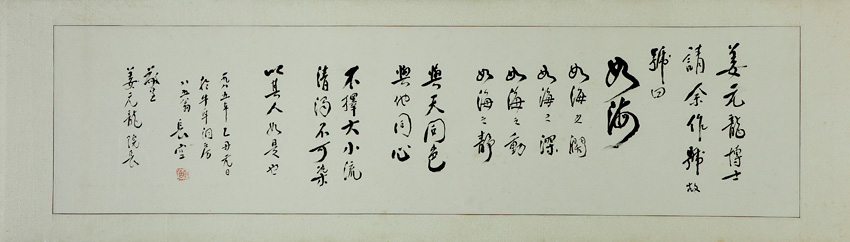 姜元龍博士
請余作號故
號曰
如海
如海之闊
如海之深
如海之動
如海之靜
與天同色
與地同心
不擇大小流
清濁不可染
以其人如是也
一九八五年乙丑元日
於牛
八六翁 長雲
敬呈
姜元龍院長